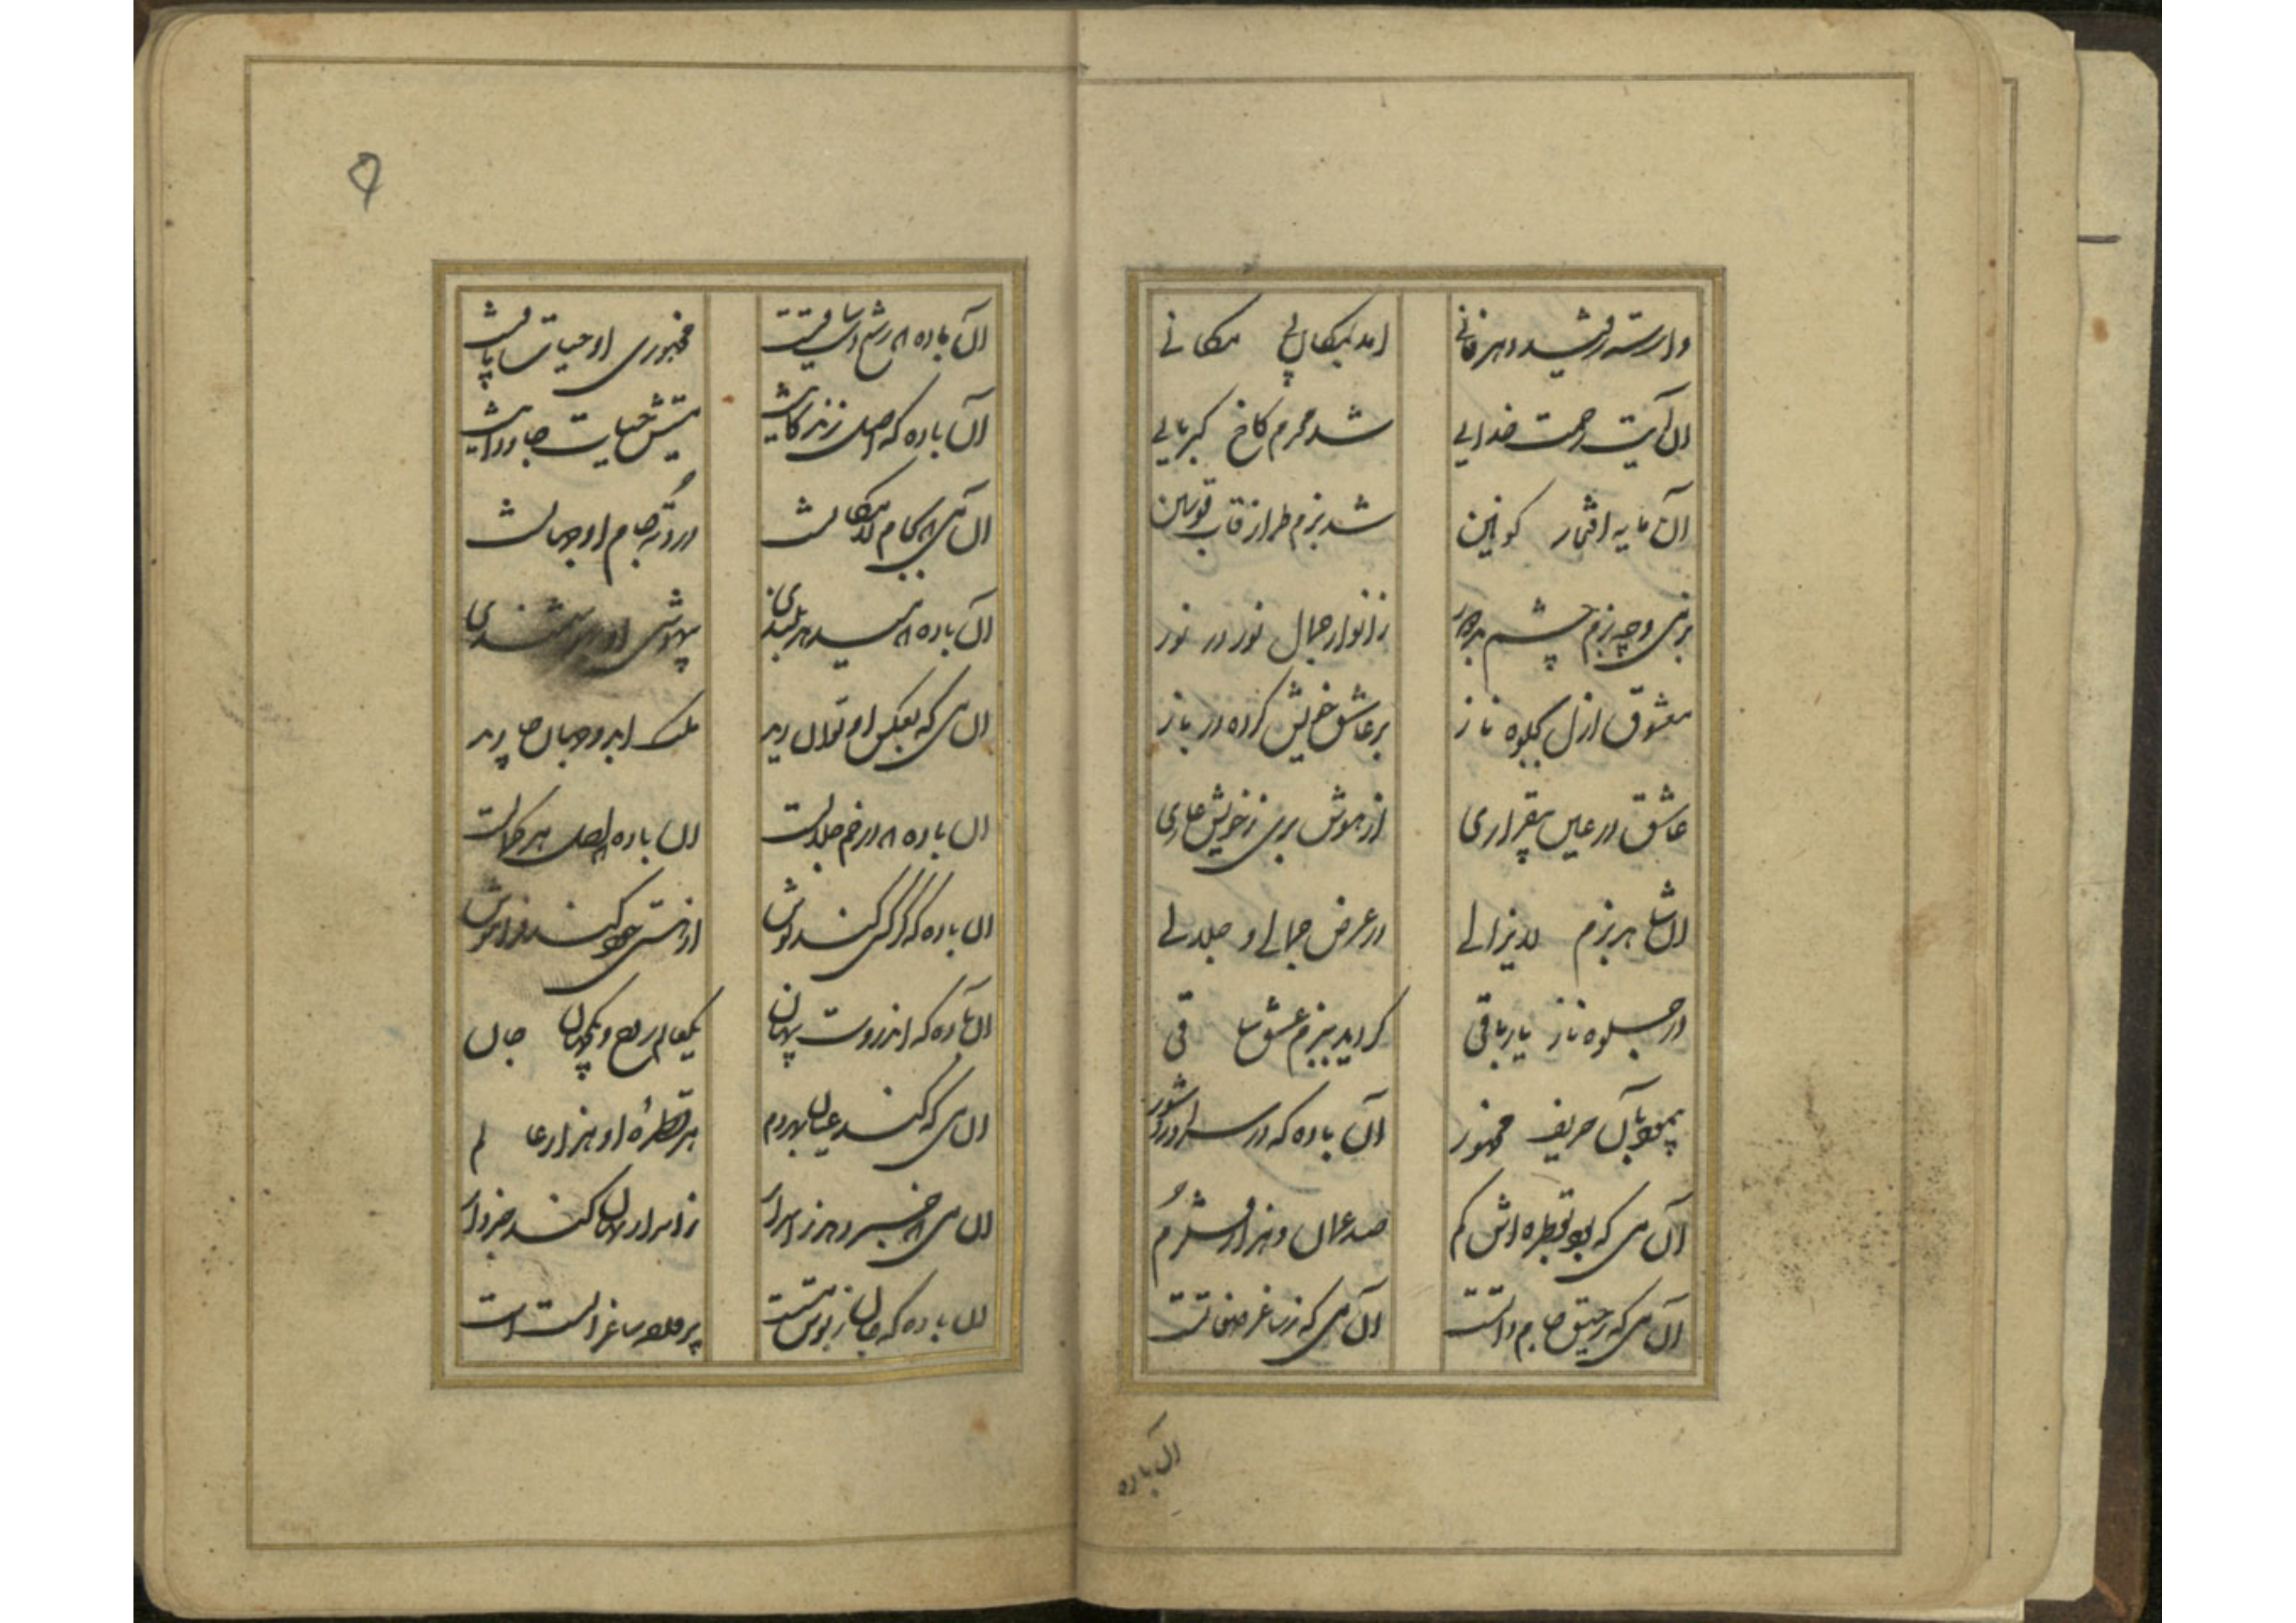 وارسته ز قید دهر فانی
آمد بمکان لی مکانی
آن آیت رحمت خدایی
شد محرم کاخ کبریایی
آن مایه افتخار کونین
شد بزم طراز قاب قوسین
بزمی و چه بزم چشم بد دور
ز انوار جمال نور در نور
معشوق ازل بجلوه ناز
بر عاشق خویش کرده در باز
عاشق در عین بیقراری
از هوش بری ز خویش عاری
آن شاهد بزم لایزالی
در عرض جمالی و جلالی
در جلوه ناز یار باقی
گردید ببزم عشق ساقی
پیمود بآن حریف مخمور
آن باده که در سر آورد شور
آن می که بود قطره اش کم
صد عمان و هزار قلزم
آن می که رحیق جام ذاتست
آن می که ز ساغر صفاتست
آن باده
آن باده
مخموری او حیات
آن باده که اصل زندگانیست
حیات جاودانیست
آن می که بکام لامکانست
درد ته جام او جهانست
آن باده که
بیهوشی او
آن می که بعکس او توان دید
ملک ابد و جهان جاوید
آن باده که در خم جلالست
آن باده که اصل هر کمالست
آن باده که هر کس کند نوش
از هستی خود کند فراموش
آن باده که اندروست پنهان
یکعالم روح و یکجهان جان
آن می که کند عیان بهر دم
هر قطره او هزار عالم
آن می که خبر دهد ز اسرار
ز اسرار نهان کند خبردار
آن باده که جان ز بوش مستست
پر ساغر الست است